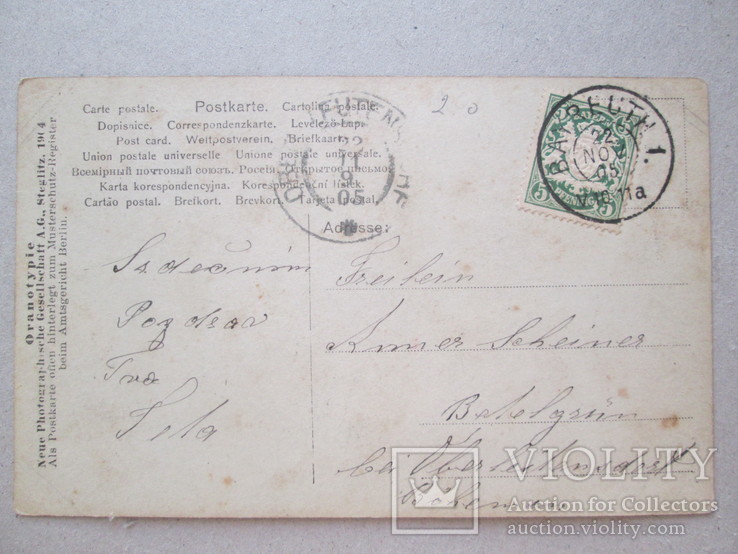 Carte postale. Postkarte. Cartolina postale.
Dopisnice. Correspondenzkarte. Levelező-Lap.
Post card. Weltpostverein. Briefkaart.
Union postale universelle. Unione postale universale.
Всемірный почтовый союзъ. Россія. Открытое письмо.
Karta korespondencyjna. Korespondenční lístek.
Cartão postal. Brefkort. Brevkort. Tarjeta postal.
Adresse:
Oranotypie
Neue Photographische Gesellschaft A.G., Steglitz, 1904
Als Postkarte offen hinterlegt zum Musterschutz-Register
beim Amtsgericht Berlin.
20
BAYREUTH 1.
22
NOV
05
11a
5
22
11
05
Srdečním
Pozdrav
Tva
Freilein
Scheiner
bei Oberleutensdorf
VIOLITY
Auction for Collectors
auction.violity.com